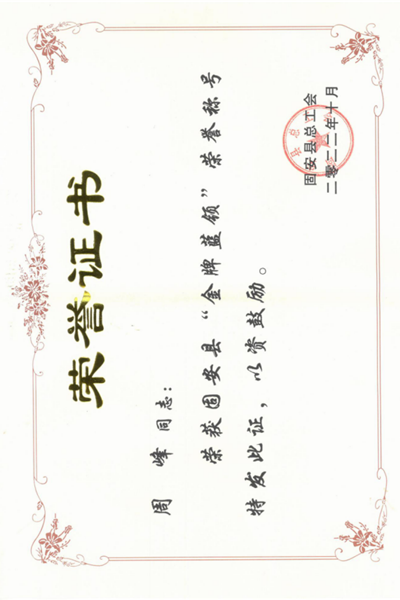 荣誉证书
周 峰 同志：
荣获固安县“金牌蓝领”荣誉称号
特发此证，以资鼓励。
固安县总工会
二零二二年十月